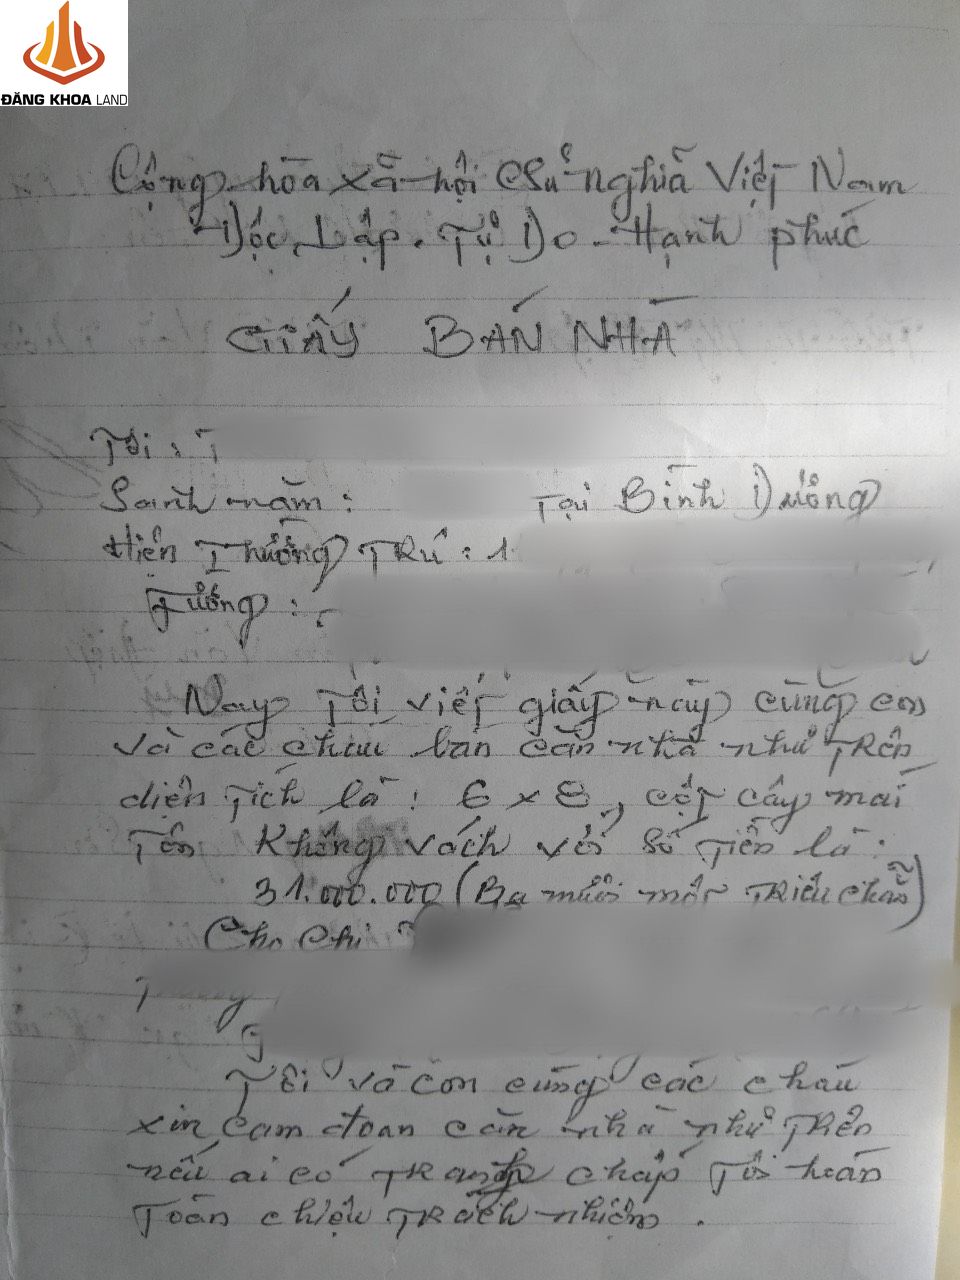 ĐĂNG KHOA LAND
Cộng hòa xã hội Chủ nghĩa Việt Nam
Độc Lập. Tự Do - Hạnh phúc
GIẤY BÁN NHÀ
Tôi :
Sanh năm : Tại Bình Dương
Hiện Thường TRú : 1
Tường :
Nay Tôi viết giấy này cùng con
và các cháu bán căn nhà như TRên
diện Tích là : 6 x 8, cột cây mái
Tôn Không vách với số Tiền là :
31.000.000 (Ba mươi một TRiệu chẵn)
Cho Chị
Tôi và con cùng các cháu
xin cam đoan căn nhà như TRên
nếu ai có TRanh chấp Tôi hoàn
Toàn chịu TRách nhiệm .